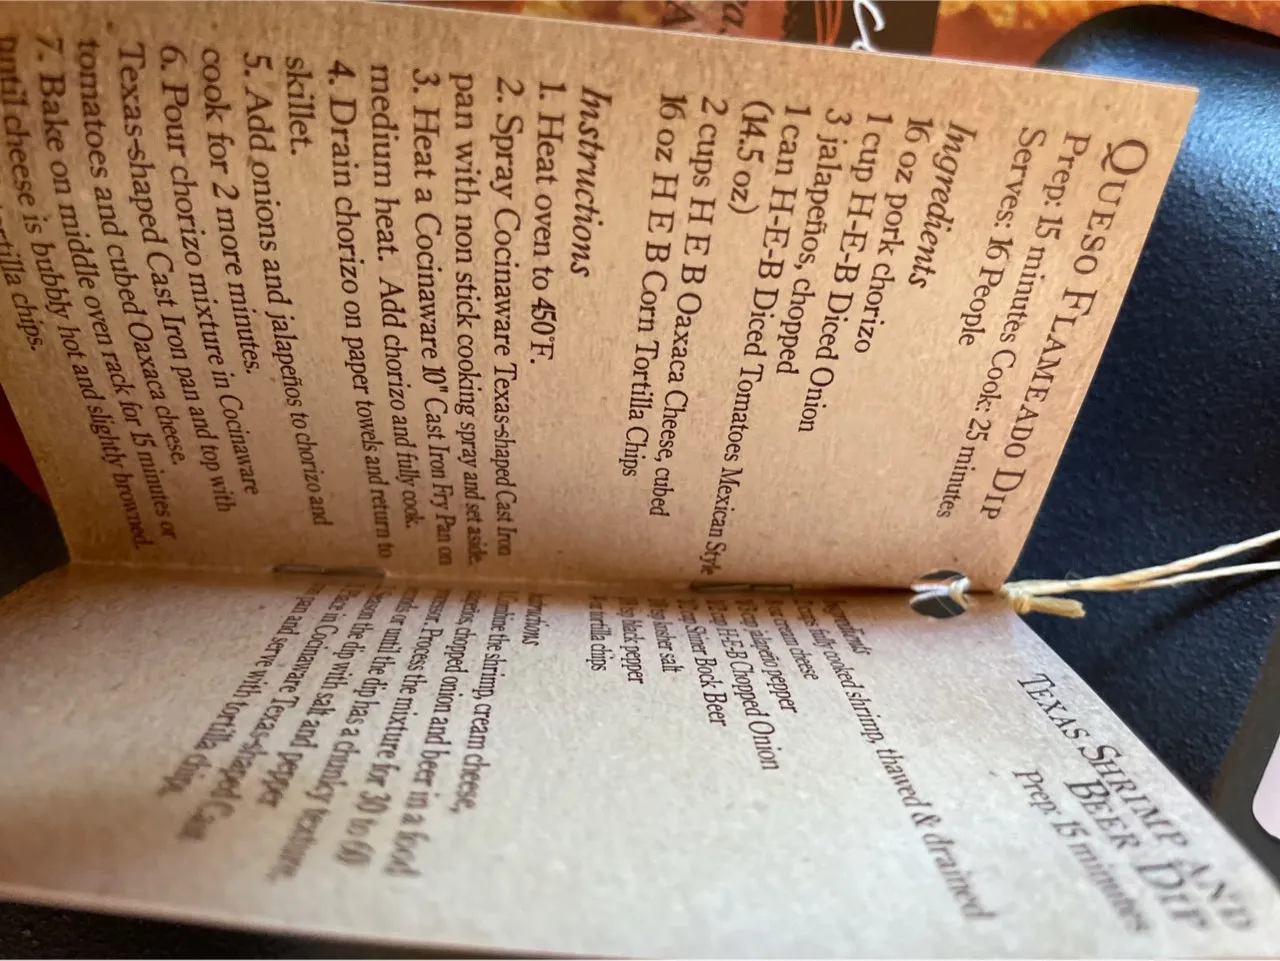 QUESO FLAMEADO DIP
Prep: 15 minutes Cook: 25 minutes
Serves: 16 People
Ingredients
16 oz pork chorizo
1 cup H-E-B Diced Onion
3 jalapeños, chopped
1 can H-E-B Diced Tomatoes Mexican Style
(14.5 oz)
2 cups H E B Oaxaca Cheese, cubed
16 oz H E B Corn Tortilla Chips
Instructions
1. Heat oven to 450°F.
2. Spray Cocinaware Texas-shaped Cast Iron
pan with non stick cooking spray and set aside.
3. Heat a Cocinaware 10" Cast Iron Fry Pan on
medium heat. Add chorizo and fully cook.
4. Drain chorizo on paper towels and return to
skillet.
5. Add onions and jalapeños to chorizo and
cook for 2 more minutes.
6. Pour chorizo mixture in Cocinaware
Texas-shaped Cast Iron pan and top with
tomatoes and cubed Oaxaca cheese.
7. Bake on middle oven rack for 15 minutes or
until cheese is bubbly hot and slightly browned.
tortilla chips.
TEXAS SHRIMP AND
BEER DIP
Prep: 15 minutes
Ingredients
fully cooked shrimp, thawed & drained
cream cheese
jalapeño pepper
cup H-E-B Chopped Onion
Shiner Bock Beer
kosher salt
black pepper
tortilla chips
Instructions
the shrimp, cream cheese,
chopped onion and beer in a food
Process the mixture for 30 to 60
or until the dip has a chunky texture.
the dip with salt and pepper
in Cocinaware Texas-shaped Cast
pan and serve with tortilla chips.